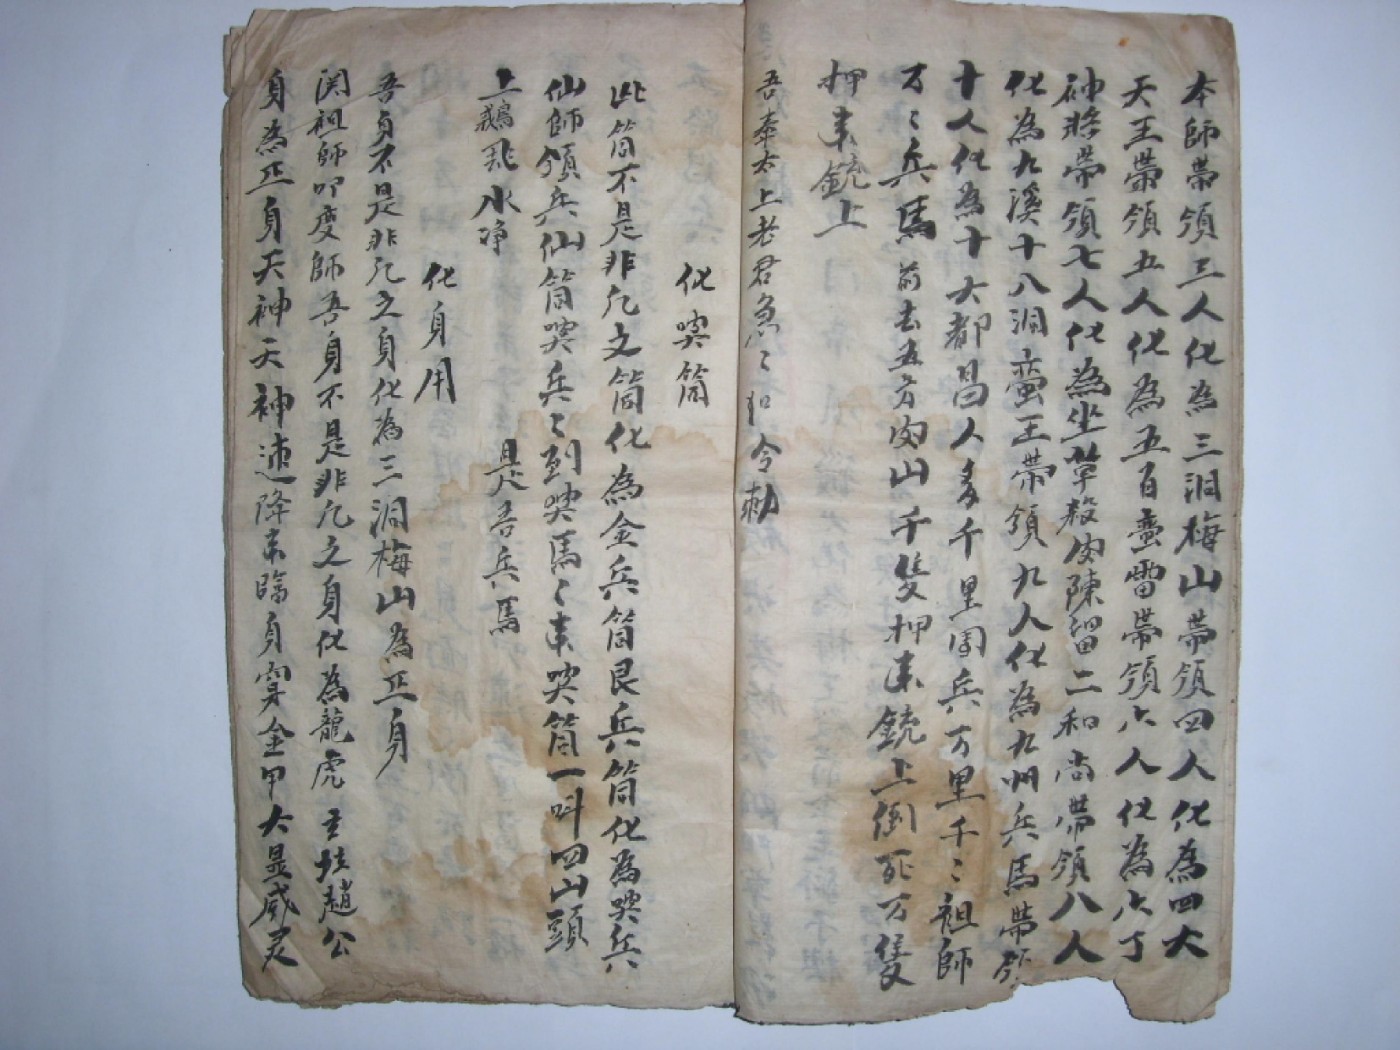 本師帶領三人化為三洞梅山帶領四人化為四大
天王帶領五人化為五百蛮雷帶領六人化為六丁
神將帶領七人化為坐草殺肉陳留二和尚帶領八人
化為九溪十八洞蛮王帶領九人化為九州兵馬帶領
十人化為十大都昌人多千里圍兵万里千〻祖師
万〻兵馬前去五方肉山千隻押来銃上倒死万隻
押来銃上
吾奉太上老君急〻如令勅
化筒
此筒不是非凡之筒化為金兵筒艮兵筒化為兵
仙師領兵仙筒兵〻到馬〻来筒一叫四山頭
上鵝飛水净 是吾兵馬
化身用
吾身不是非凡之身化為三洞梅山為正身
関祖師叩度師吾身不是非凡之身化為龍虎玄壇趙公
身為正身天神天神速降来臨身穿金甲大显威灵